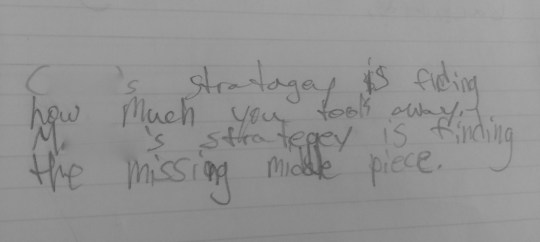 C 's stratagey is fiding
how much you took away.
M. 's strategey is finding
the missing middle piece.